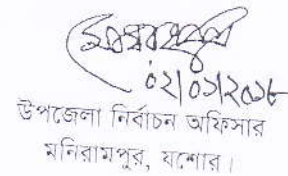 ০২/০১/২০১৮
উপজেলা নির্বাচন অফিসার
মনিরামপুর, যশোর।